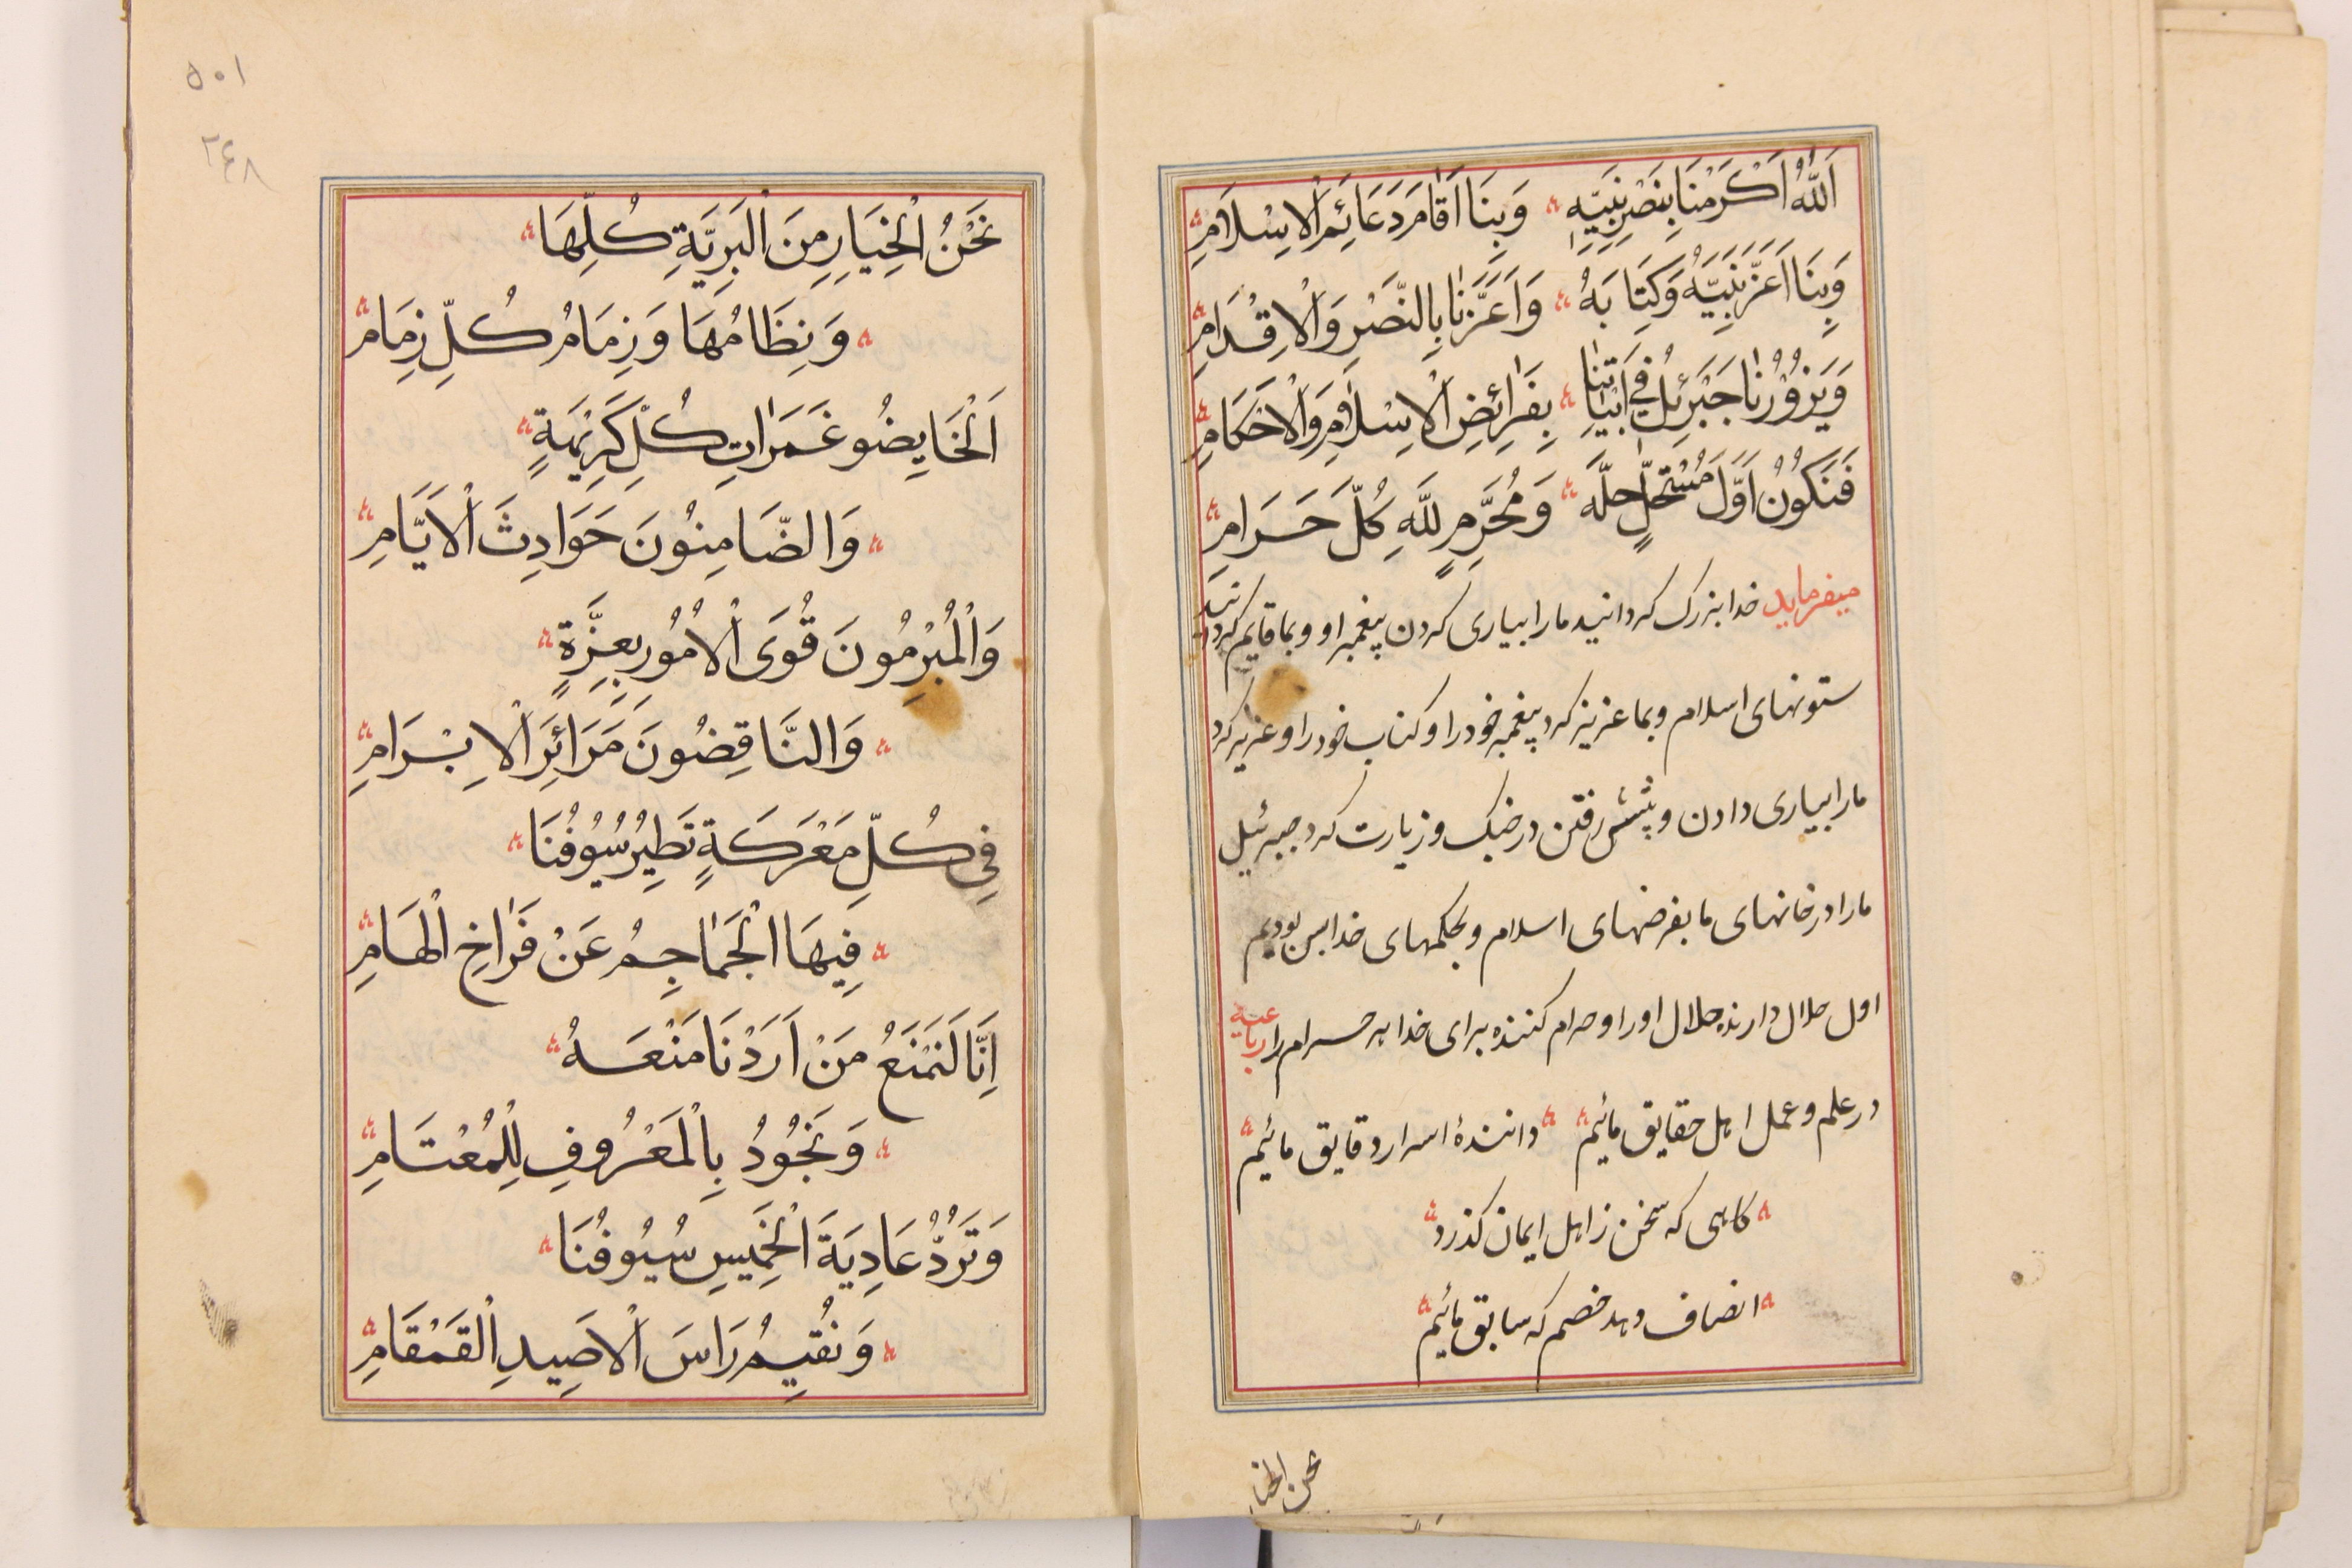 اَللّٰهُ اَكْرَمَنَا بِنَصْرِ نَبِيِّهِ وَبِنَا اَقَامَ دَعَائِمَ الْاِسْلَامِ
وَبِنَا اَعَزَّ نَبِيَّهُ وَكِتَابَهُ وَاَعَزَّنَا بِالنَّصْرِ وَالْاِقْدَامِ
وَيَزُوْرُنَا جَبْرَئِلُ فِي اَبْيَاتِنَا بِفَرَائِضِ الْاِسْلَامِ وَالْاَحْكَامِ
فَنَكُوْنُ اَوَّلَ مُسْتَحِلٍّ حِلَّهُ وَمُحَرِّمٍ لِلّٰهِ كُلَّ حَرَامِ
میفرماید خدا بزرک کردانید مارا بیاری کردن پیغمبر او وبما قایم کردانید
ستونهای اسلام وبما عزیز کرد پیغمبر خود را وکتاب خود را وعزیز کرد
مارا بیاری دادن وپیش رفتن در جنک وزیارت کرد جبرئیل
مارا در خانهای ما بفرضهای اسلام وبحکمهای خدا پس بودیم
اول حلال دارنده حلال او را وحرام کننده برای خدا هر حرام را رباعیه
در علم وعمل اهل حقایق مائیم دانندهٔ اسرار دقایق مائیم
کاهی که سخن ز اهل ایمان کذرد
انصاف دهد خصم که سابق مائیم
نحن الخیار
٥٠١
٢٤٨
نَحْنُ الْخِيَارُ مِنَ الْبَرِيَّةِ كُلِّهَا
وَنِظَامُهَا وَزِمَامُ كُلِّ زِمَامِ
اَلْخَايِضُو غَمَرَاتِ كُلِّ كَرِيْهَةٍ
وَالضَّامِنُونَ حَوَادِثَ الْاَيَّامِ
وَالْمُبْرِمُونَ قُوَى الْاُمُوْرِ بِعِزَّةٍ
وَالنَّاقِضُونَ مَرَائِرَ الْاِبْرَامِ
فِي كُلِّ مَعْرَكَةٍ تَطِيْرُ سُيُوْفُنَا
فِيهَا الْجَمَاجِمُ عَنْ فَرَاخِ الْهَامِ
اِنَّا لَنَمْنَعُ مَنْ اَرَدْنَا مَنْعَهُ
وَنَجُوْدُ بِالْمَعْرُوفِ لِلْمُعْتَامِ
وَتَرُدُّ عَادِيَةَ الْخَمِيْسِ سُيُوفُنَا
وَنُقِيمُ رَاسَ الْاَصِيدِ الْقَمْقَامِ